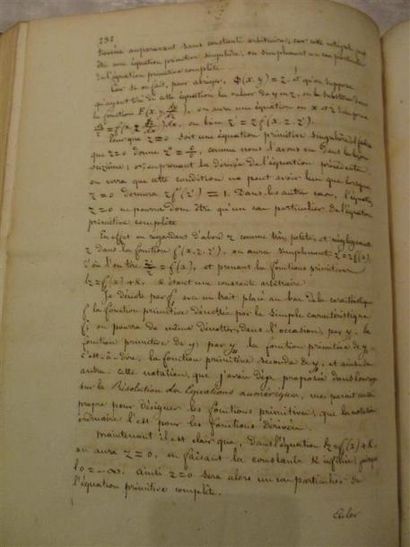 232
trouvée auparavant sans constante arbitraire, sera cette intégrale
une équation primitive singulière, ou simplement un cas particulier
de l'équation primitive complète.
Car si on fait, pour abréger, Φ(x, y) = z, et qu'on suppose
qu'ayant tiré de cette équation la valeur de y en z, on la substitue dans
la fonction F(x, y, on aura une équation en x et z
ou bien z' = z f(x, z, z').
Pour que z = 0 soit une équation primitive singulière, il faudra
que z = 0 donne comme nous l'avons vu dans la leçon
on prenant la dérivée de l'équation précédente
on verra que cette condition ne peut avoir lieu que lorsque
z = 0 donnera z f'(z') = 1. Dans les autres cas, l'équation
z = 0 ne pourra donc être qu'un cas particulier de l'équation
primitive complète.
En effet en regardant d'abord z comme très petite, et négligeant
z dans la fonction f(x, z, z'), on aura simplement z' = z f(x),
d'où l'on tire = f(x), et prenant les fonctions primitives
lz = f(x) + k, k étant une constante arbitraire.
Je dénote par f avec un trait placé au bas de la caractéristique
f la fonction primitive dénotée par la simple caractéristique
f; on pourra de même dénoter, dans l'occasion, par y, la
fonction primitive de y; par y, la fonction primitive de y,
c'est-à-dire, la fonction primitive seconde de y, et ainsi de
autre cette notation, que j'avais déjà proposée dans l'ouvrage
sur la Résolution des Équations numériques, me parait aussi
propre pour désigner les fonctions primitives, que la notation
ordinaire l'est pour les fonctions dérivées.
Maintenant il est clair que, dans l'équation lz = f(x) + k,
on aura z = 0, en faisant la constante k infinie, puisque
l0 = -∞. Ainsi z = 0 sera alors un cas particulier de
l'équation primitive complète.
Euler